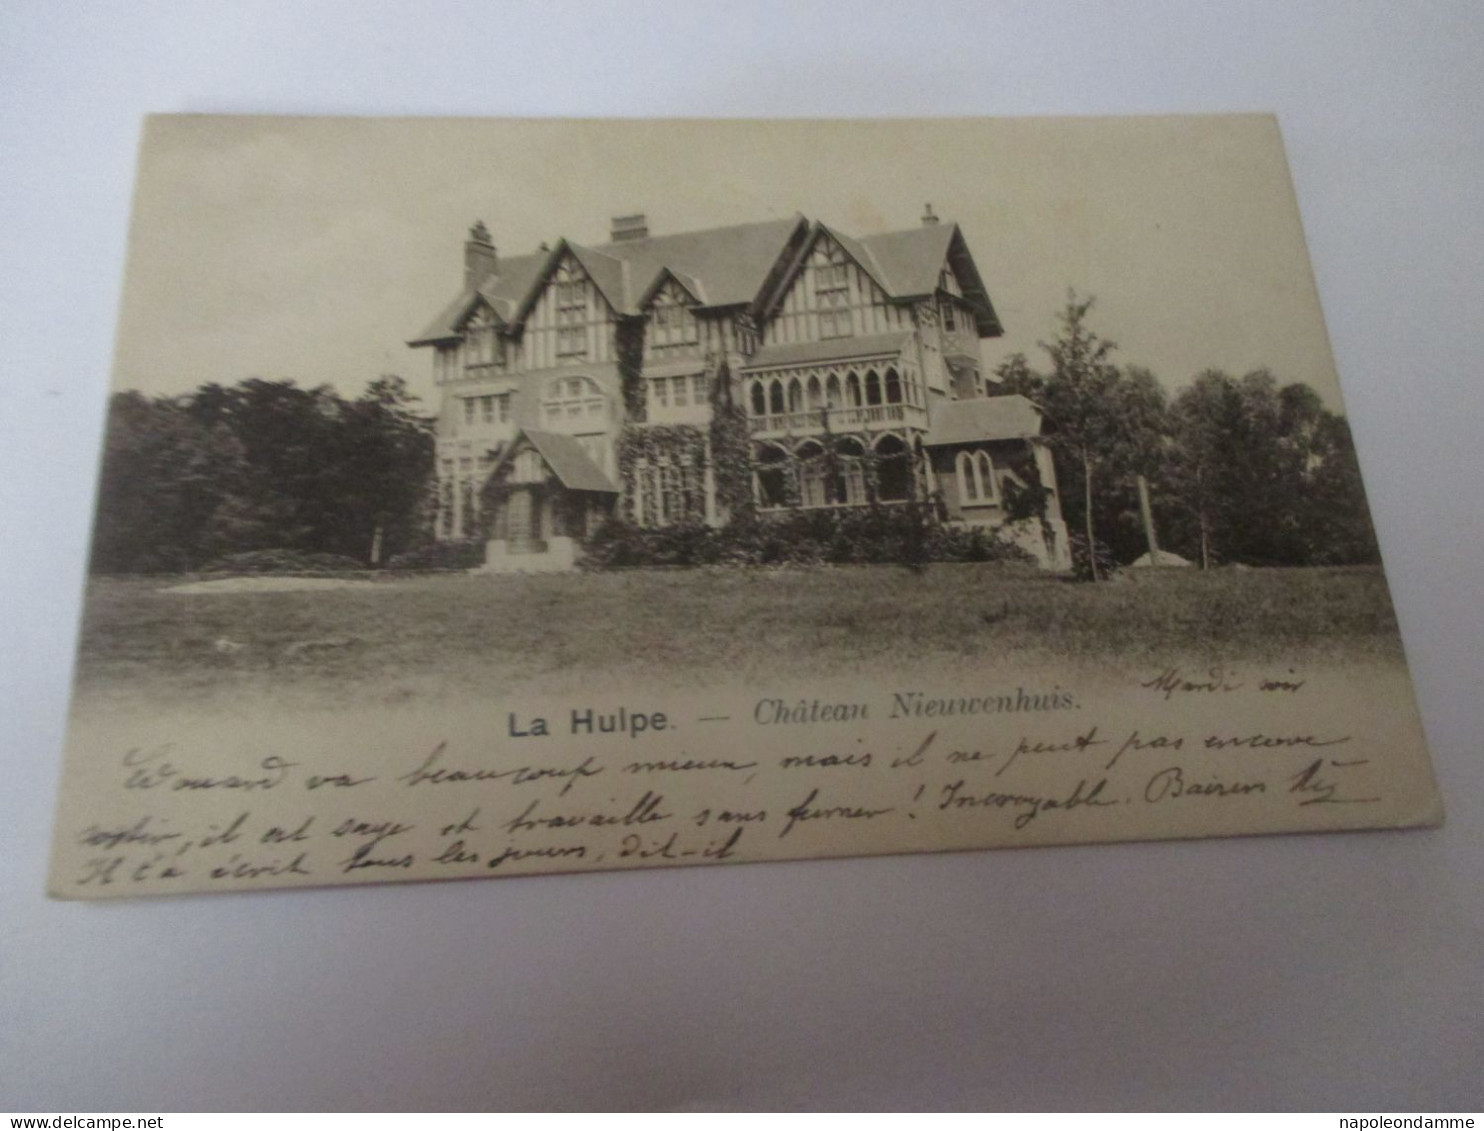 La Hulpe. — Château Nieuwenhuis.
Mardi soir
Edouard va beaucoup mieux, mais il ne peut pas encore
sortir, il est sage et travaille sans fumer ! Incroyable. Baisers
Il t'a écrit tous les jours, dit-il
napoleondamme